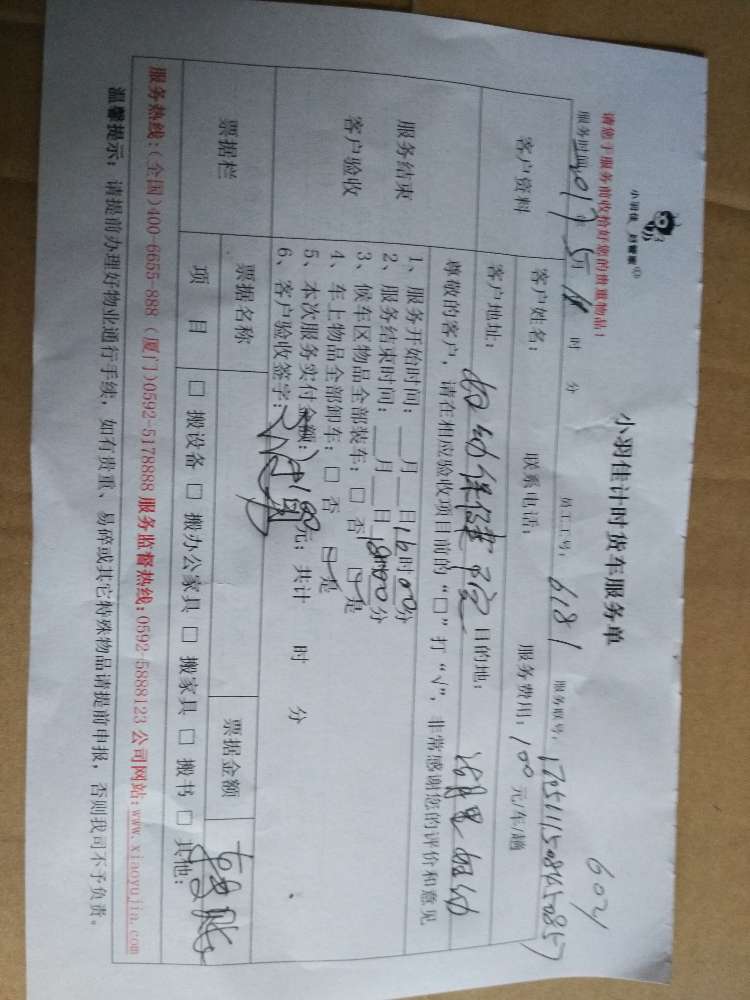 小羽佳 好管家®
小羽佳计时货车服务单
604
请您于服务前收拾好您的贵重物品！
服务时间：2017年5月 时 分 员工工号：6181 服务联号：
客户资料 客户姓名： 联系电话： 服务费用：100元/车/趟
客户地址：妇幼保健院 目的地： 妇幼
服务结束
客户验收
尊敬的客户，请在相应验收项目前的“□”打“√”，非常感谢您的评价和意见
1、服务开始时间：___月___日16时00分
2、服务结束时间：___月___日18时00分
3、候车区物品全部装车：□ 否 □ 是
4、车上物品全部卸车：□ 否 □ 是
5、本次服务实付金额：100元；共计 时 分
6、客户验收签字：
票据栏 票据名称 票据金额
项 目 □ 搬设备 □ 搬办公家具 □ 搬家具 □ 搬书 □ 其他：
服务热线：(全国)400-6655-888 (厦门)0592-5178888 服务监督热线：0592-5888123 公司网站：www.xiaoyujia.com
温馨提示：请提前办理好物业通行手续，如有贵重、易碎或其它特殊物品请提前申报，否则我司不予负责。